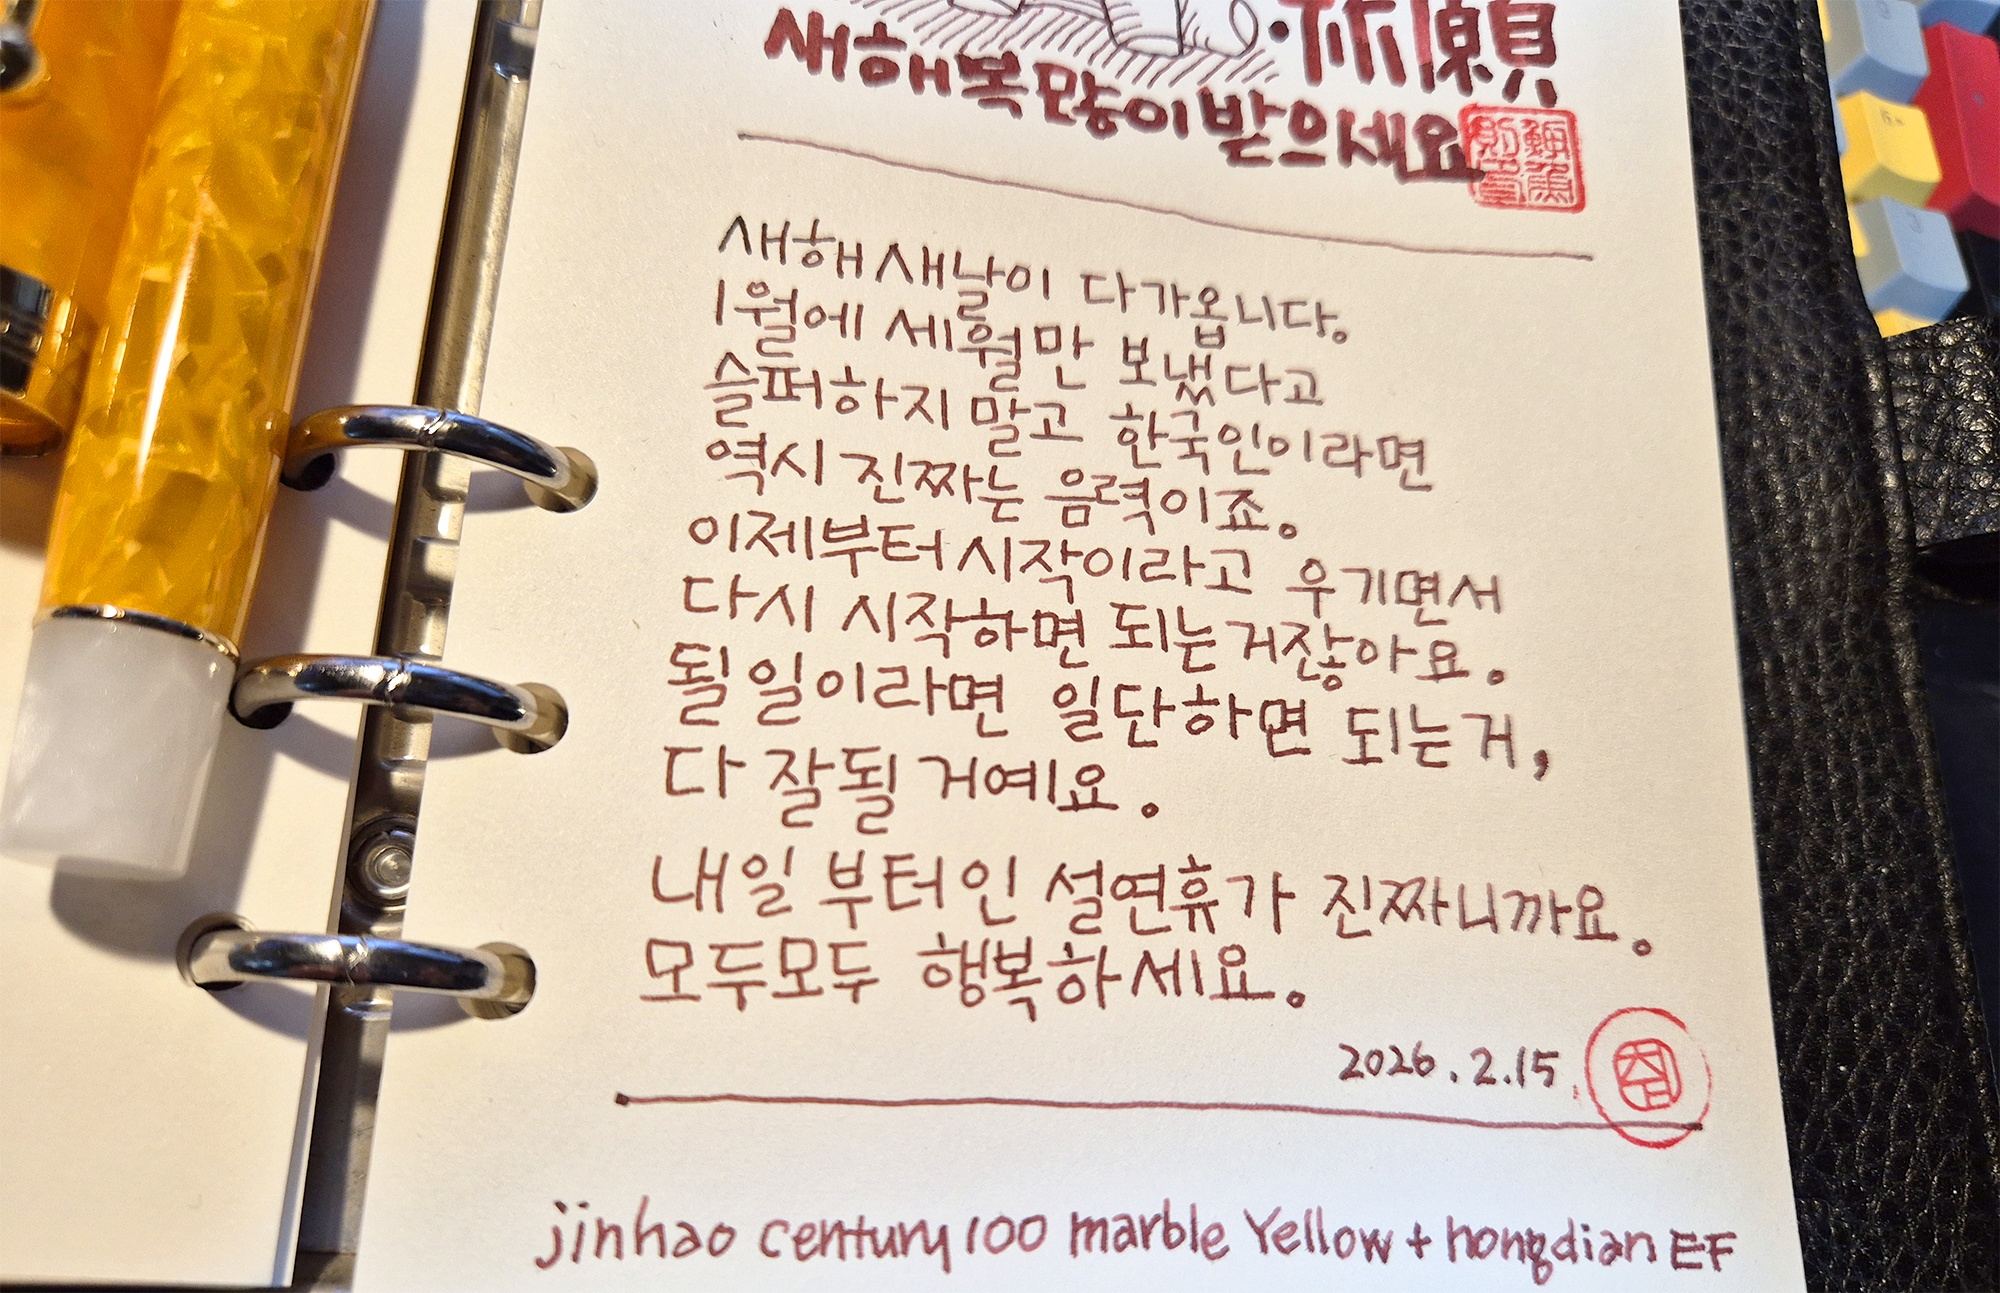 願
새해 복 많이 받으세요
새해 새날이 다가옵니다.
1월에 세월만 보냈다고
슬퍼하지 말고 한국인이라면
역시 진짜는 음력이죠.
이제부터 시작이라고 우기면서
다시 시작하면 되는거잖아요.
될 일이라면 일단하면 되는거,
다 잘될 거예요.
내일 부터인 설연휴가 진짜니까요.
모두모두 행복하세요.
2026.2.15.
jinhao century 100 marble Yellow + hongdian EF